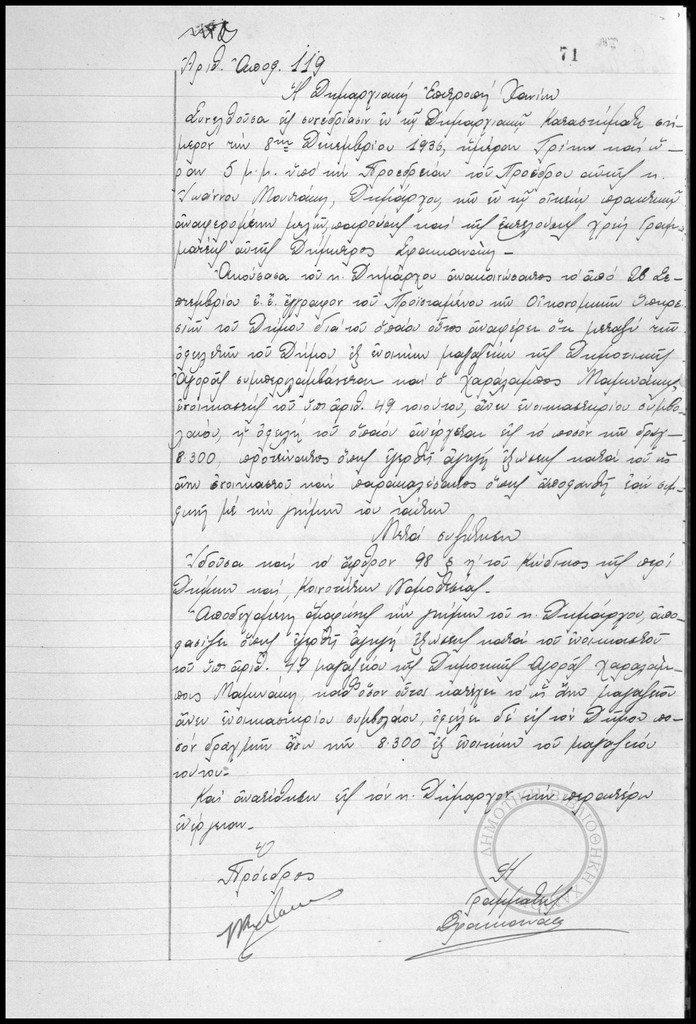 71
Ἀριθ. Ἀποφ. 119
Ἡ Δημαρχιακή Ἐπιτροπή Χανίων
Συνελθοῦσα εἰς συνεδρίασιν ἐν τῷ Δημαρχιακῷ Καταστήματι σή-
μερον τήν 8ην Δεκεμβρίου 1936, ἡμέραν Τρίτην καί ὥ-
ραν 5 μ.μ. ὑπό τήν Προεδρείαν τοῦ Προέδρου αὐτῆς κ.
Ἰωάννου Μουντάκη, Δημάρχου, τῶν ἐν τῷ οἰκείῳ πρακτικῷ
ἀναφερομένων μελῶν παρούσης καί τῆς ἐκτελούσης χρέη Γραμ-
ματέως αὐτῆς Δήμητρος
Ἀκούσασα τοῦ κ. Δημάρχου ἀνακοινώσαντος τό ἀπό 28 Σε-
πτεμβρίου ἐ.ἔ. ἔγγραφον τοῦ Προϊσταμένου τῶν Οἰκονομικῶν Ὑπηρε-
σιῶν τοῦ Δήμου διά τοῦ ὁποίου οὗτος ἀναφέρει ὅτι μεταξύ τῶν
ὀφειλετῶν τοῦ Δήμου ἐξ ἐνοικίων μαγαζείων τῆς Δημοτικῆς
Ἀγορᾶς συμπεριλαμβάνεται καί ὁ Χαράλαμπος Μαμουνάκης
ἐνοικιαστής τοῦ ὑπ' ἀριθ. 49 τοιούτου, ἄνευ ἐνοικιαστηρίου συμβο-
λαίου, ἡ ὀφειλή τοῦ ὁποίου ἀνέρχεται εἰς τό ποσόν τῶν δραχ.
8.300, προτείναντος ὅπως ἐγερθῇ ἀγωγή ἐξώσεως κατά τοῦ ὡς
ἄνω ἐνοικιαστοῦ καί παρακαλέσαντος ὅπως ἀποφανθῇ ἐάν συμ-
φωνῇ μέ τήν γνώμην του ταύτην
Μετά συζήτησιν
Ἰδοῦσα καί τό ἄρθρον 98 § η' τοῦ Κώδικος τῆς περί
Δήμων καί Κοινοτήτων Νομοθεσίας.
Ἀποδεχομένη ὁμοφώνως τήν γνώμην τοῦ κ. Δημάρχου, ἀπο-
φασίζει ὅπως ἐγερθῇ ἀγωγή ἐξώσεως κατά τοῦ ἐνοικιαστοῦ
τοῦ ὑπ' ἀριθ. 49 μαγαζείου τῆς Δημοτικῆς Ἀγορᾶς Χαραλάμ-
πους Μαμουνάκη, καθ' ὅσον οὗτος κατέχει τό ὡς ἄνω μαγαζεῖον
ἄνευ ἐνοικιαστηρίου συμβολαίου, ὀφείλει δέ εἰς τόν Δῆμον πο-
σόν δραχμῶν ἄνω τῶν 8.300 ἐξ ἐνοικίων τοῦ μαγαζείου
τούτου.
Καί ἀνατίθησιν εἰς τόν κ. Δήμαρχον τήν περαιτέρω
ἐνέργειαν.
Ὁ
Πρόεδρος
Ἡ
Γραμματεύς
ΔΗΜΟΤΙΚΗ ΒΙΒΛΙΟΘΗΚΗ ΧΑΝΙΩΝ